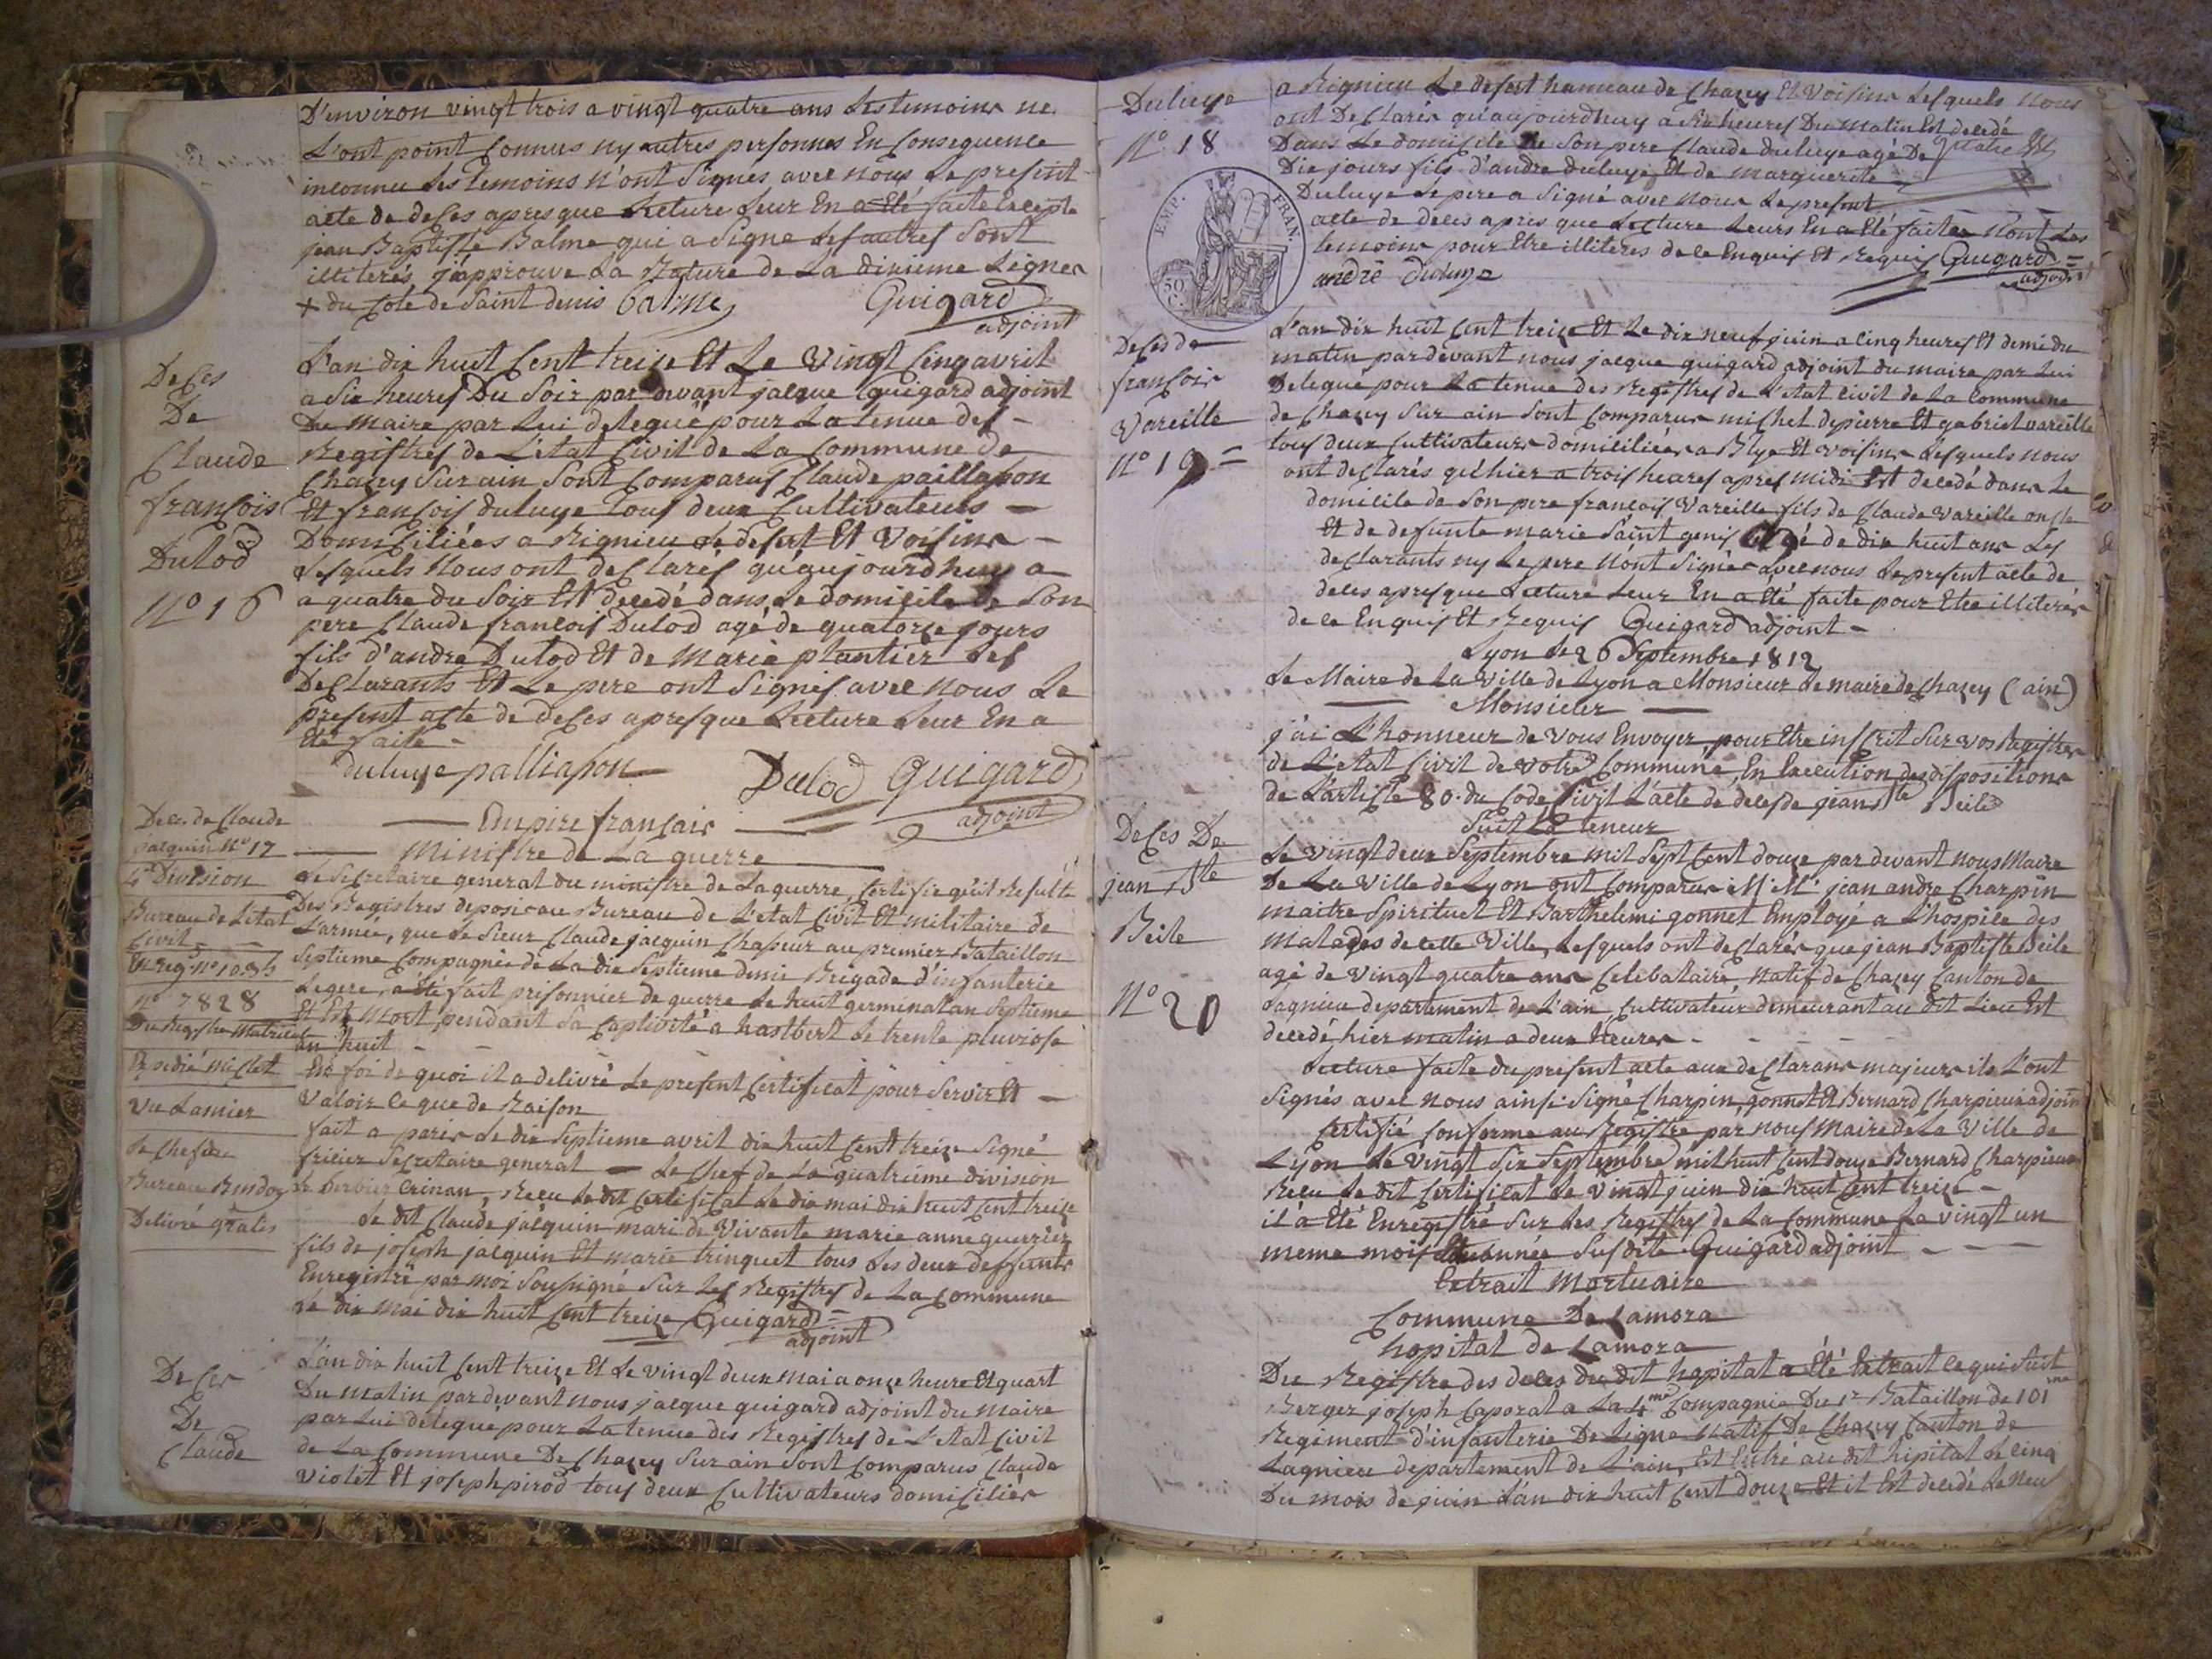 D'environ vingt trois a vingt quatre ans Les temoins ne
L'ont point Connus ny autres personnes En Consequence
inconnu Les temoins n'ont Signés avec nous Le present
acte de deces apres que Lecture Leur En a Eté faite Excepte
jean Baptiste Balme qui a Signe Les autres Sont
illiterés j'approuve La Rature de La dixieme Ligne
+ du Coté de Saint denis balme Guigard
adjoint
Deces
De
Claude
françois
Dulod
N° 16
L'an dix huit Cent treize Et Le Vingt Cinq avril
a Six heures Du Soir par devant jacque Guigard adjoint
Du Maire par Lui delegué pour La tenue des
Registres de L'etat Civil de La Commune de
Chazey Sur ain Sont Comparus Claude paillasson
Et françois duluye tous deux Cultivateurs
Domiciliées a Rignieu Le desert Et Voisins
Lesquels Nous ont declarés qu'aujourdhuy a
a quatre du Soir Est decedé dans Le domicile de Son
pere Claude francois Dulod agé de quatorze jours
fils d'andre Dulod Et de Marie plantier Les
Declarants Et Le pere ont Signés avec nous Le
present acte de deces apres que Lecture Leur En a
Eté faite
duluye palliason Dulod Guigard
adjoint
Deces. de Claude
jacquin N° 17
4e Division
Bureau de L'etat
Civil
N° 7828
Du Registre Matricule
Expedié miclet
Vu Lamier
Le Chef du
Bureau
Delivré gratis
Empire français
Ministre de La guerre
Le Secretaire general du ministre de La guerre, Certifie qu'il Resulte
Des Registres deposés au Bureau de L'etat Civil Et militaire de
L'armée, que Le Sieur Claude jacquin Chasseur au premier Bataillon
Septieme Compagnie de La dix Septieme demi Brigade d'infanterie
Legere, a été fait prisonnier de guerre Le huit germinal an Septieme
Et Est Mort pendant Sa Captivité a hastbert Le trente pluviose
an huit
En foi de quoi il a delivré Le present Certificat pour Servir Et
Valoir Ce que de Raison
fait a paris Le dix Septieme avril dix huit Cent treize Signé
Secretaire general Le Chef de La quatrieme division
Reçu Le dit Certificat Le dix mai dix huit Cent treize
Le dit Claude jacquin mari de Vivante marie anne guerrier
fils de joseph jacquin Et marie trinquet tous Les deux deffunts
Enregistré par moi Soussigné Sur Les Registres de La Commune
Le dix mai dix huit Cent treize Guigard
adjoint
Deces
De
Claude
L'an dix huit Cent treize Et Le vingt deux mai a onze heure Et quart
Du matin par devant nous jacque guigard adjoint du Maire
par Lui delegue pour La tenue des Registres de L'etat Civil
de La Commune De Chazey Sur ain Sont Comparus Claude
Violet Et joseph pirod tous deux Cultivateurs domiciliés
Duluye
N° 18
EMP. FRAN.
50 C.
a Rignieu Le desert hameau de Chazey Et Voisins Lesquels Nous
ont Declarés qu'aujourdhuy a Six heures Du Matin Est decedé
Dans Le domicile de Son pere Claude duluye agé De quatre
Dix jours fils d'andre duluye Et de marguerite
Duluye Le pere a Signé avec nous Le present
acte de deces apres que Lecture Leurs En a Eté faite Non Les
temoins pour Etre illiteres de ce Enquis Et Requis Guigard
andré duluye adjoint
Deces de
françois
Vareille
N° 19
L'an dix huit Cent treize Et Le dix neuf juin a Cinq heures Et demi du
matin par devant nous jacque guigard adjoint du maire par Lui
Delegué pour La tenue des Registres de L'etat Civil de La Commune
de Chazey Sur ain Sont Comparus michel depierre Et gabriel vareille
tous deux Cultivateurs domiciliées a Blye Et voisins Lesquels nous
ont declarés qu'hier a trois heures apres midi Est decedé dans Le
domicile de Son pere francois Vareille fils de Claude Vareille
Et de defunte marie Saint genis agé de dix huit ans Les
declarants ny Le pere N'ont Signés avec nous Le present acte de
deces apres que Lecture Leur En a Eté faite pour Etre illiterés
de ce Enquis Et Requis Guigard adjoint
Lyon Le 26 Septembre 1812
Le Maire de La Ville de Lyon a Monsieur Le maire de Chazey (ain)
Monsieur
j'ai L'honneur de Vous Envoyer, pour Etre inscrit Sur vos Registres
de L'etat Civil de votre Commune, En Execution des dispositions
de L'article 80. du Code Civil L'acte de deces de jean Bte Beile
Suit La teneur
Deces De
jean Bte
Beile
N° 20
Le vingt deux Septembre mil Sept Cent douze par devant nous Maire
De La Ville de Lyon ont Comparus M. M. jean andre Charpin
maitre Spirituel Et Barthelemi gonnet Employé a L'hospice des
Malades de cette Ville, Lesquels ont declarés que jean Baptiste Beile
agé de vingt quatre ans Celebataire, natif de Chazey Canton de
Lagnieu departement de L'ain, Cultivateur demeurant au dit Lieu Est
decedé hier matin a deux heures
Lecture faite du present acte aux declarans majeurs ils L'ont
Signés avec nous ainsi Signé Charpin, gonnet Et Bernard Charpieux adjoint
Certifié Conforme au Registre par nous Maire de La Ville de
Lyon Le Vingt Six Septembre mil huit Cent douze Bernard Charpieux
Reçu Le dit Certificat Le Vingt juin dix huit Cent treize
il a Eté Enregistré Sur Les Registres de La Commune Le vingt un
meme mois Et année Susdite Guigard adjoint
Extrait Mortuaire
Commune De Zamora
hopital de Zamora
Du Registre des deces du dit hopital a Eté Extrait Ce qui Suit
Berger joseph Caporal a La 4me Compagnie Du 1r Bataillon de 101me
Regiment d'infanterie De Ligne Natif De Chazey Canton de
Lagnieu departement de L'ain, Est Entré au dit hipital Le cinq
Du mois de juin L'an dix huit Cent douze Et il Est decedé Le neu